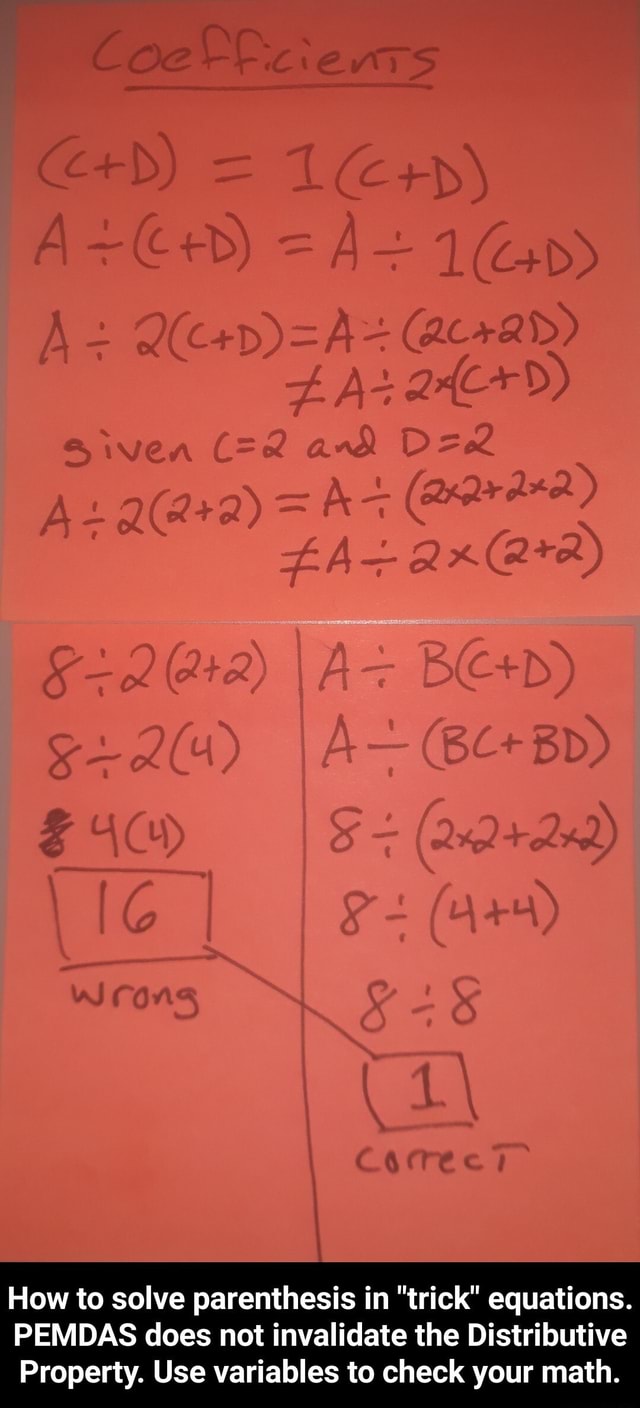 Coefficients
(C+D) = 1(C+D)
A ÷ (C+D) = A ÷ 1(C+D)
A ÷ 2(C+D) = A ÷ (2C+2D)
≠ A ÷ 2×(C+D)
given C=2 and D=2
A ÷ 2(2+2) = A ÷ (2×2+2×2)
≠ A ÷ 2 × (2+2)
8 ÷ 2(2+2)
8 ÷ 2(4)
4(4)
16
wrong
A ÷ B(C+D)
A ÷ (BC+BD)
8 ÷ (2×2+2×2)
8 ÷ (4+4)
8 ÷ 8
1
correct
How to solve parenthesis in "trick" equations.
PEMDAS does not invalidate the Distributive
Property. Use variables to check your math.